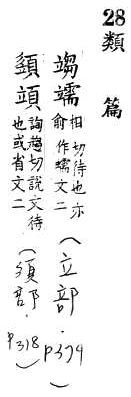 28 類篇
相俞切待也亦作蠕文二（立部．P374）
詢趨切說文待也或省文二（須部．P318）